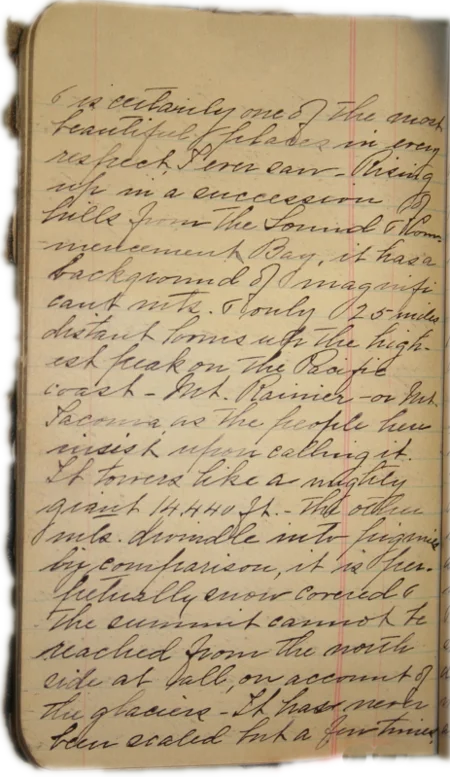 & is certainly one of the most
beautiful places in every
respect, I ever saw - Rising
up in a succession of
hills from the Sound & Com-
mencement Bay, it has a
background of magnifi
cant mts. & only 25 miles
distant looms up the high-
est peak on the Pacific
coast - Mt. Rainier - or Mt
Tacoma, as the people here
insist upon calling it.
It towers like a mighty
giant 14,440 ft. - the other
mts. dwindle into pigmies
by comparison, it is per-
petually snow covered &
the summit cannot be
reached from the north
side at all, on account of
the glaciers - It has never
been scaled but a few times,